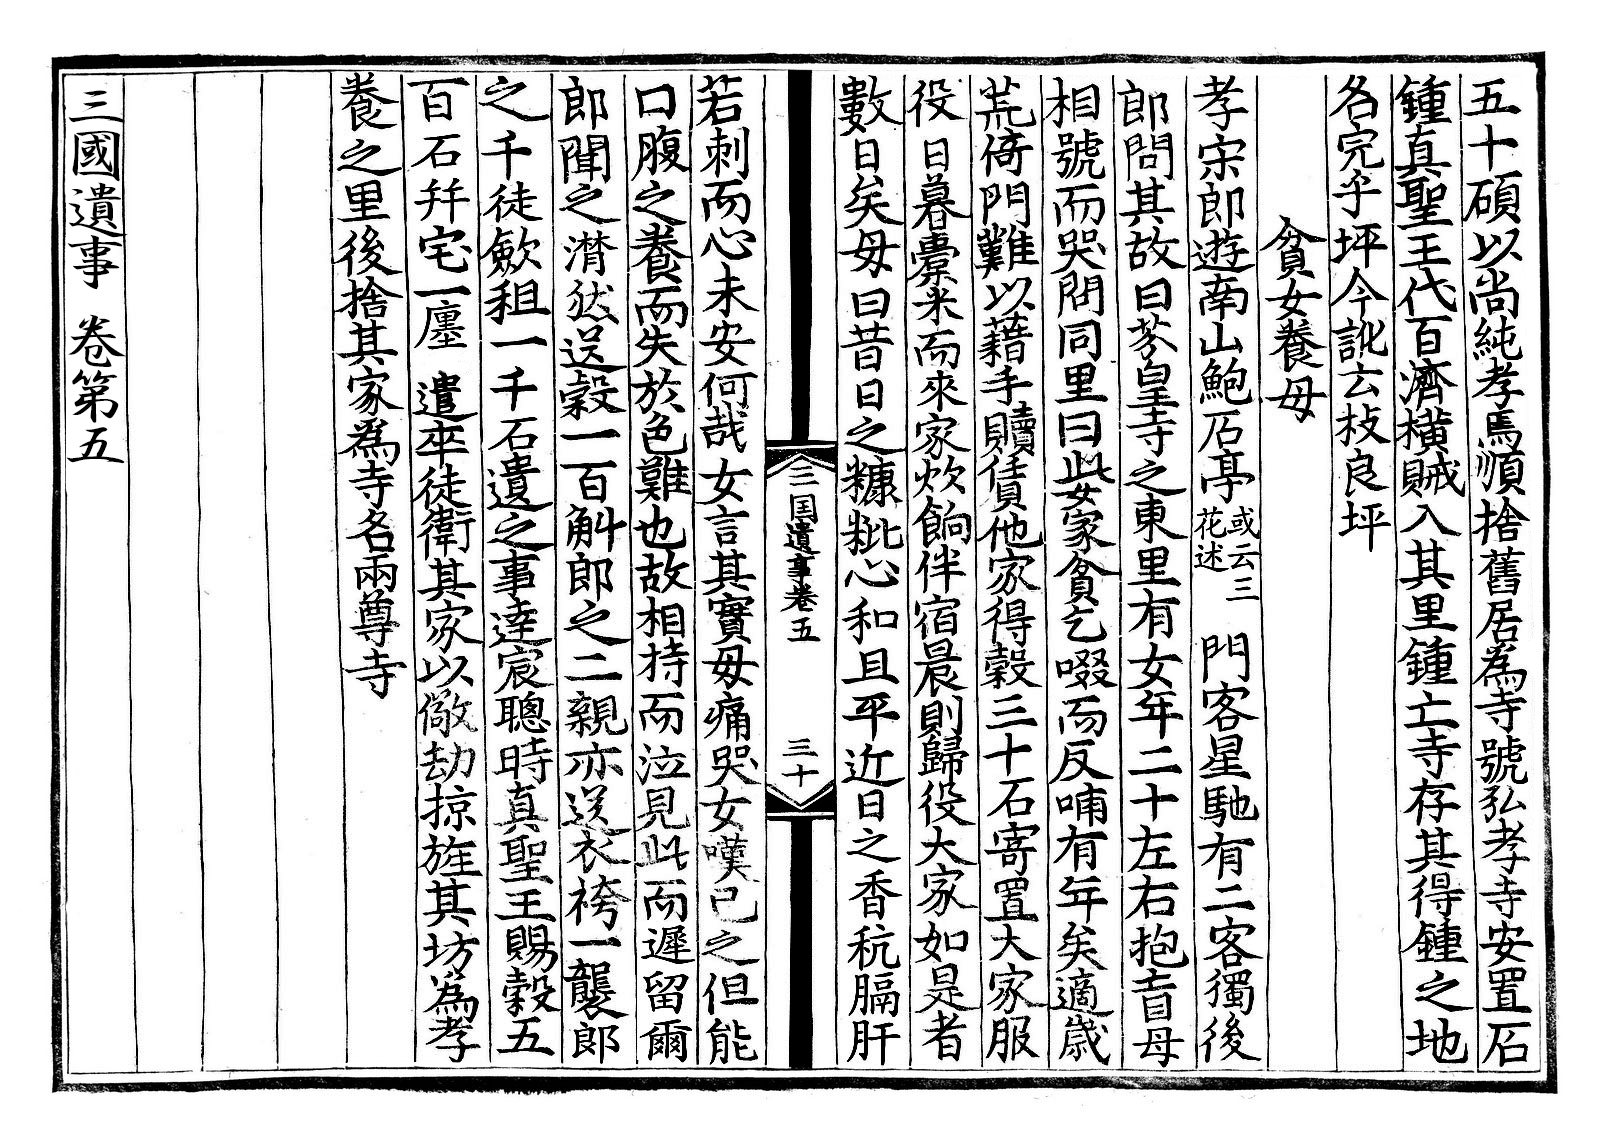 五十碩以尚純孝馬順捨舊居爲寺號弘孝寺安置石
鍾真聖王代百濟橫賊入其里鍾亡寺存其得鍾之地
名完乎坪今訛云枝良坪
貧女養母
孝宗郎遊南山鮑石亭或云三花述門客星馳有二客獨後
郎問其故曰芬皇寺之東里有女年二十左右抱盲母
相號而哭問同里曰此女家貧乞啜而反哺有年矣適歲
荒倚門難以藉手贖賃他家得穀三十石寄置大家服
役日暮橐米而來家炊餉伴宿晨則歸役大家如是者
數日矣母曰昔日之糠粃心和且平近日之香秔膈肝
三国遺事卷五 三十
若刺而心未安何哉女言其實母痛哭女嘆己之但能
口腹之養而失於色難也故相持而泣見此而遲留爾
郎聞之潸然送穀一百斛郎之二親亦送衣袴一襲郎
之千徒歛租一千石遺之事達宸聰時真聖王賜穀五
百石幷宅一廛遣卒徒衛其家以儆劫掠旌其坊爲孝
養之里後捨其家爲寺名兩尊寺
三國遺事 卷第五